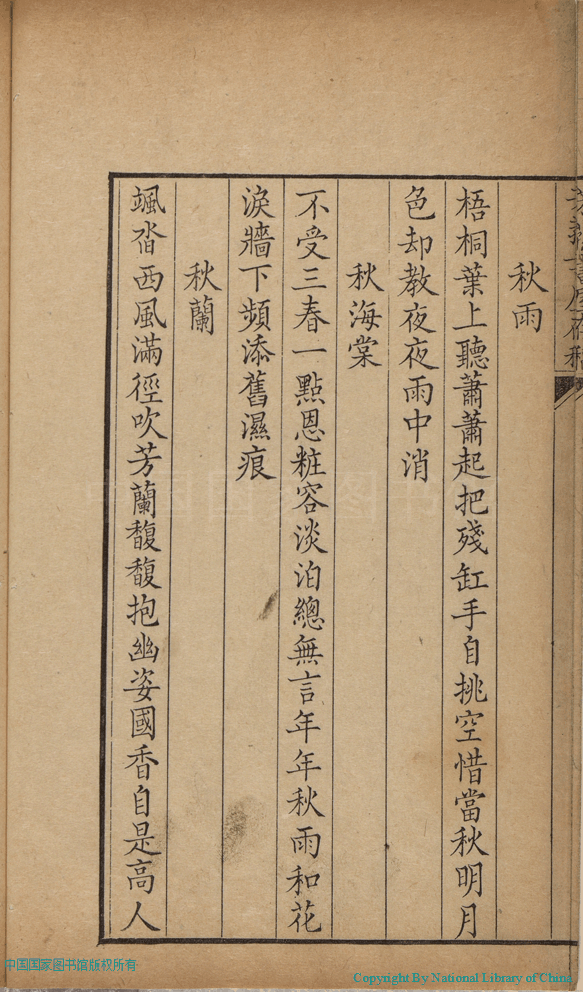 秋雨
梧桐葉上聽蕭蕭起把殘缸手自挑空惜當秋明月
色却教夜夜雨中消
秋海棠
不受三春一點恩粧容淡泊總無言年年秋雨和花
淚牆下頻添舊濕痕
秋蘭
颯沓西風滿徑吹芳蘭馥馥抱幽姿國香自是高人
中国国家图书馆
中国国家图书馆版权所有
Copyright By National Library of China